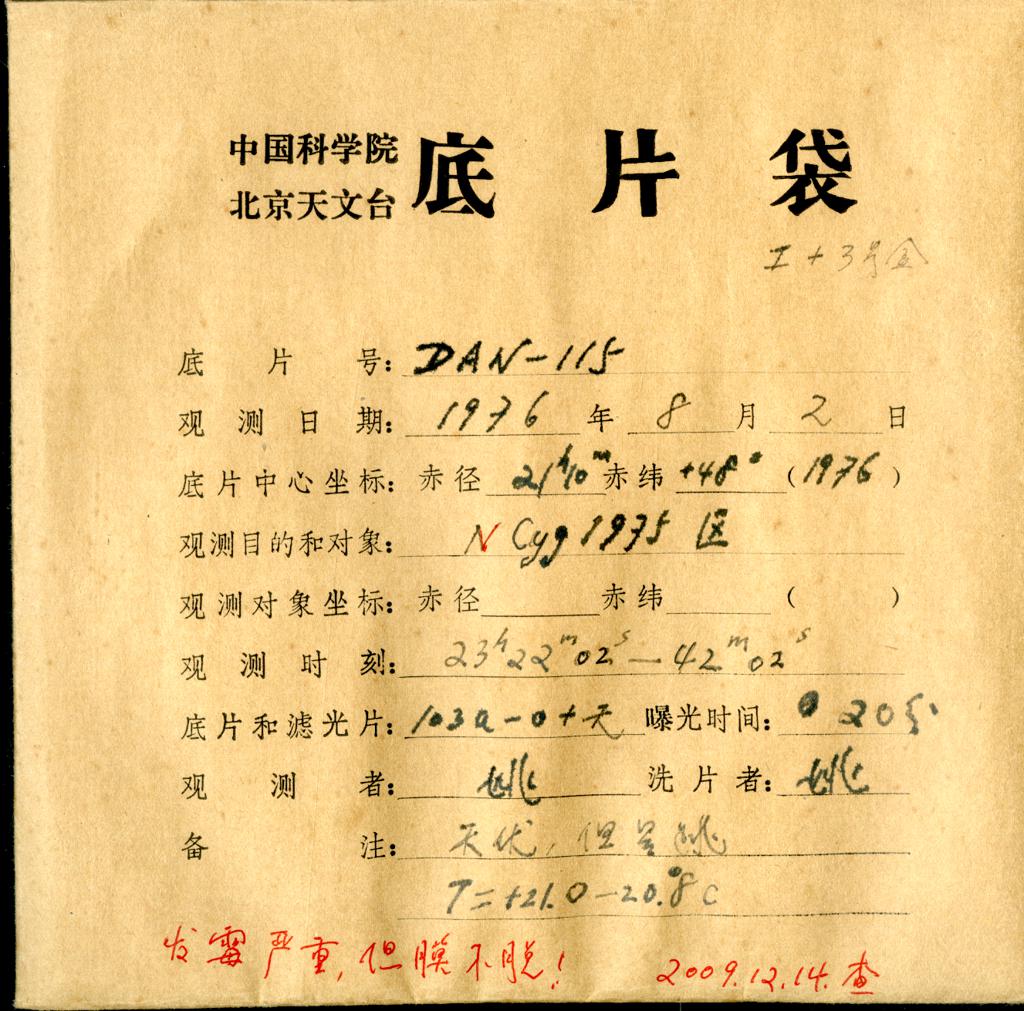 中国科学院
北京天文台
底片袋
I + 3号盒
底片号: DAN-115
观测日期: 1976 年 8 月 2 日
底片中心坐标: 赤径 21ʰ10ᵐ 赤纬 +48° (1976)
观测目的和对象: N Cyg 1975 区
观测对象坐标: 赤径 赤纬 ( )
观测时刻: 23ʰ22ᵐ02ˢ — 42ᵐ02ˢ
底片和滤光片: 103a-O+天 曝光时间: 20分
观测者: 姚 洗片者: 姚
备注: 天优, 但星跳
T=+21.0-20.8C
发霉严重, 但膜不脱!
2009.12.14. 查